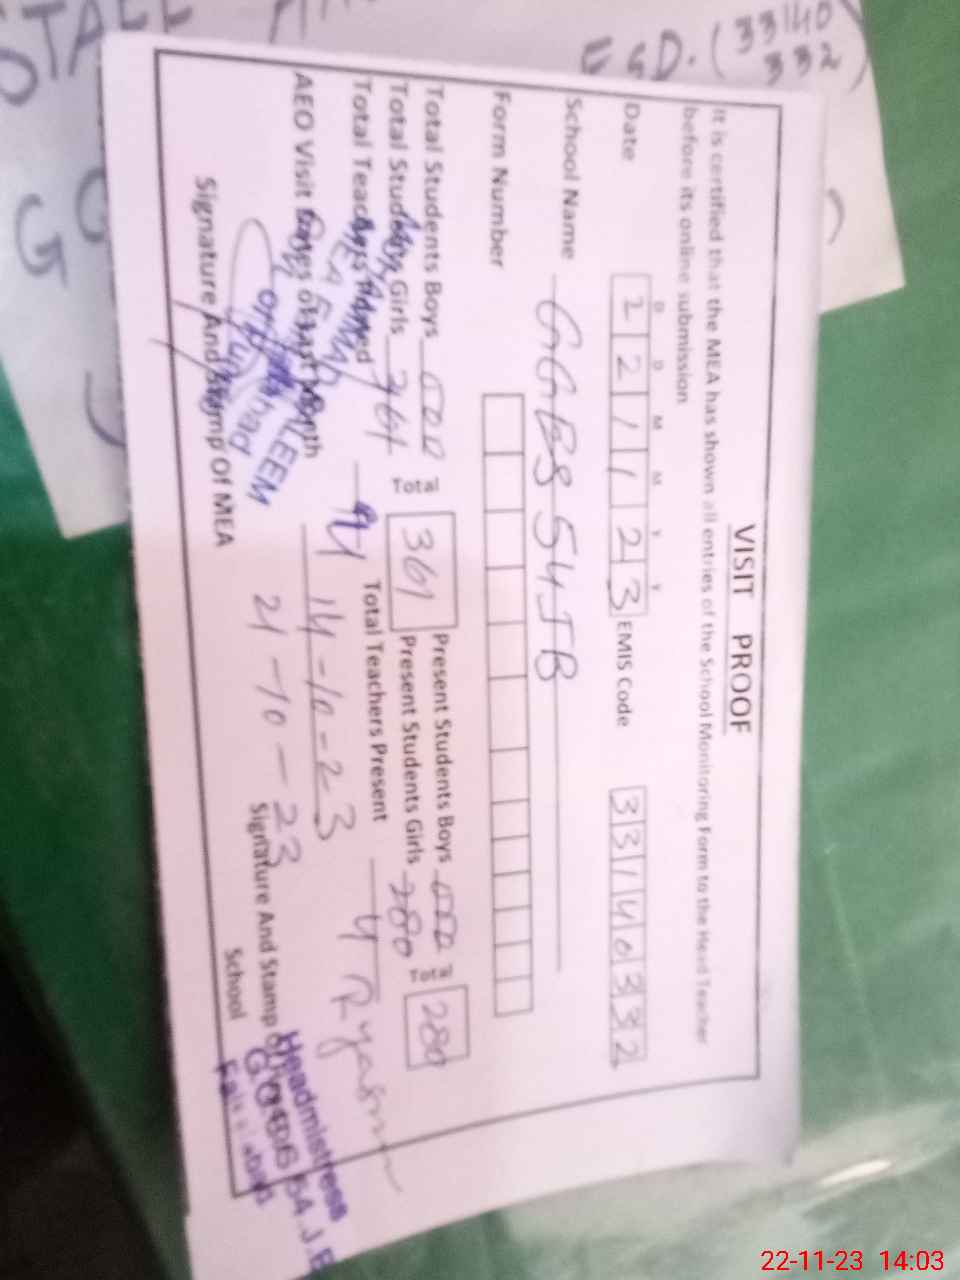 VISIT PROOF
It is certified that the MEA has shown all entries of the School Monitoring Form to the Head Teacher
before its online submission
D D M M Y Y
Date 2 2 1 1 2 3 EMIS Code 3 3 1 4 0 3 3 2
School Name GGPS 54 JB
Form Number
Total Students Boys 000 Present Students Boys 000
Total Students Girls 361 Total 361 Present Students Girls 280 Total 280
Total Teachers Posted 4 Total Teachers Present 4
AEO Visit Dates of Last Month 14-10-23
21-10-23
Signature And Stamp Of MEA
Signature And Stamp Of
School
Headmistress
54 J.B
33140
332
22-11-23 14:03